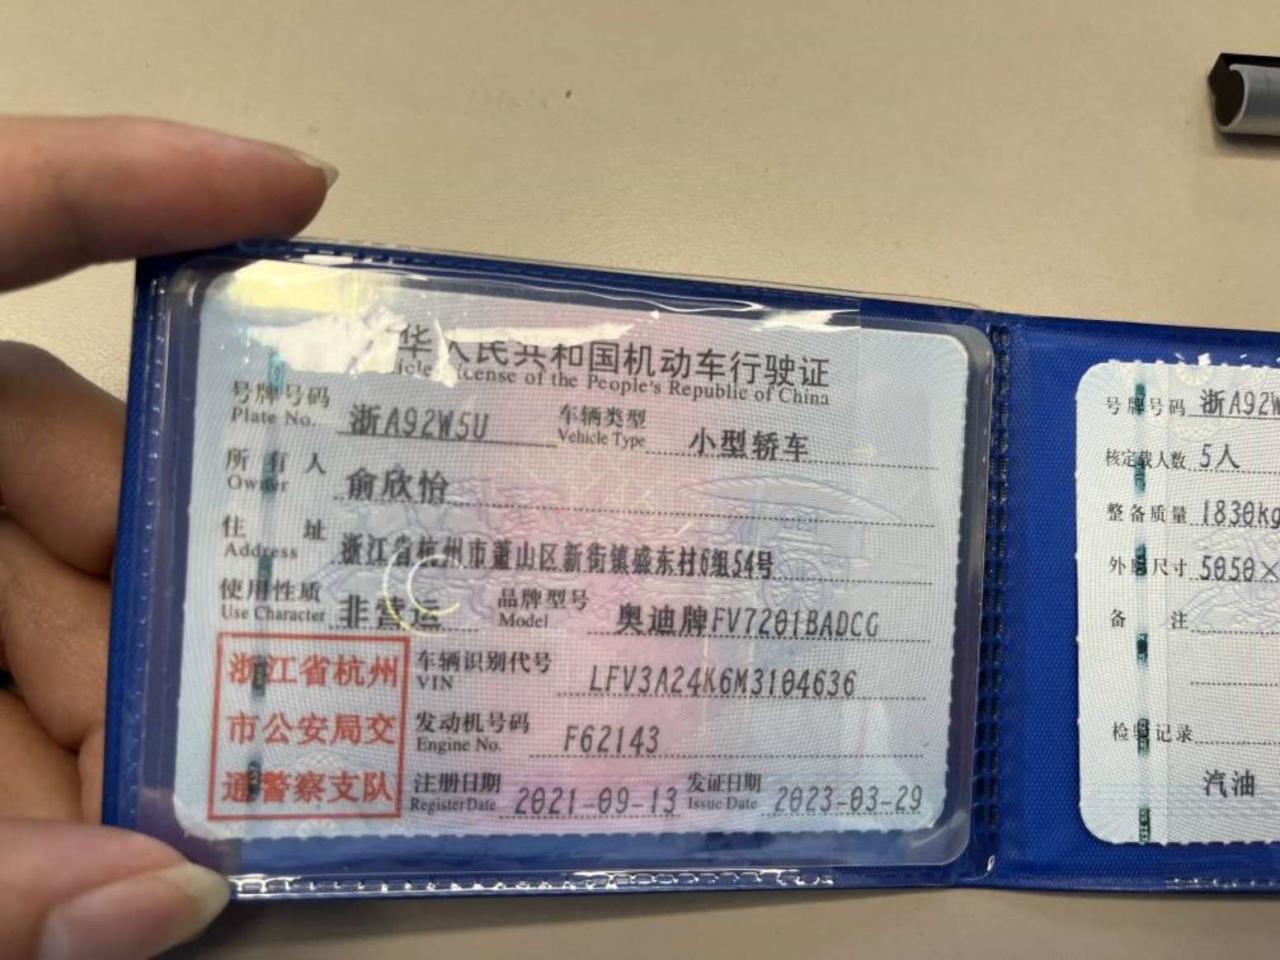 华人民共和国机动车行驶证
icle License of the People's Republic of China
号牌号码 浙A92W5U 车辆类型 小型轿车
Plate No. Vehicle Type
所有人 俞欣怡
Owner
住址 浙江省杭州市萧山区新街镇盛东村6组54号
Address
使用性质 非营运 品牌型号 奥迪牌FV7201BADCG
Use Character Model
浙江省杭州
市公安局交
通警察支队
车辆识别代号 LFV3A24K6M3104636
VIN
发动机号码 F62143
Engine No.
注册日期 2021-09-13 发证日期 2023-03-29
Register Date Issue Date
号牌号码 浙A92W
核定载人数 5人
整备质量 1830kg
外廓尺寸 5050×
备注
检验记录
汽油